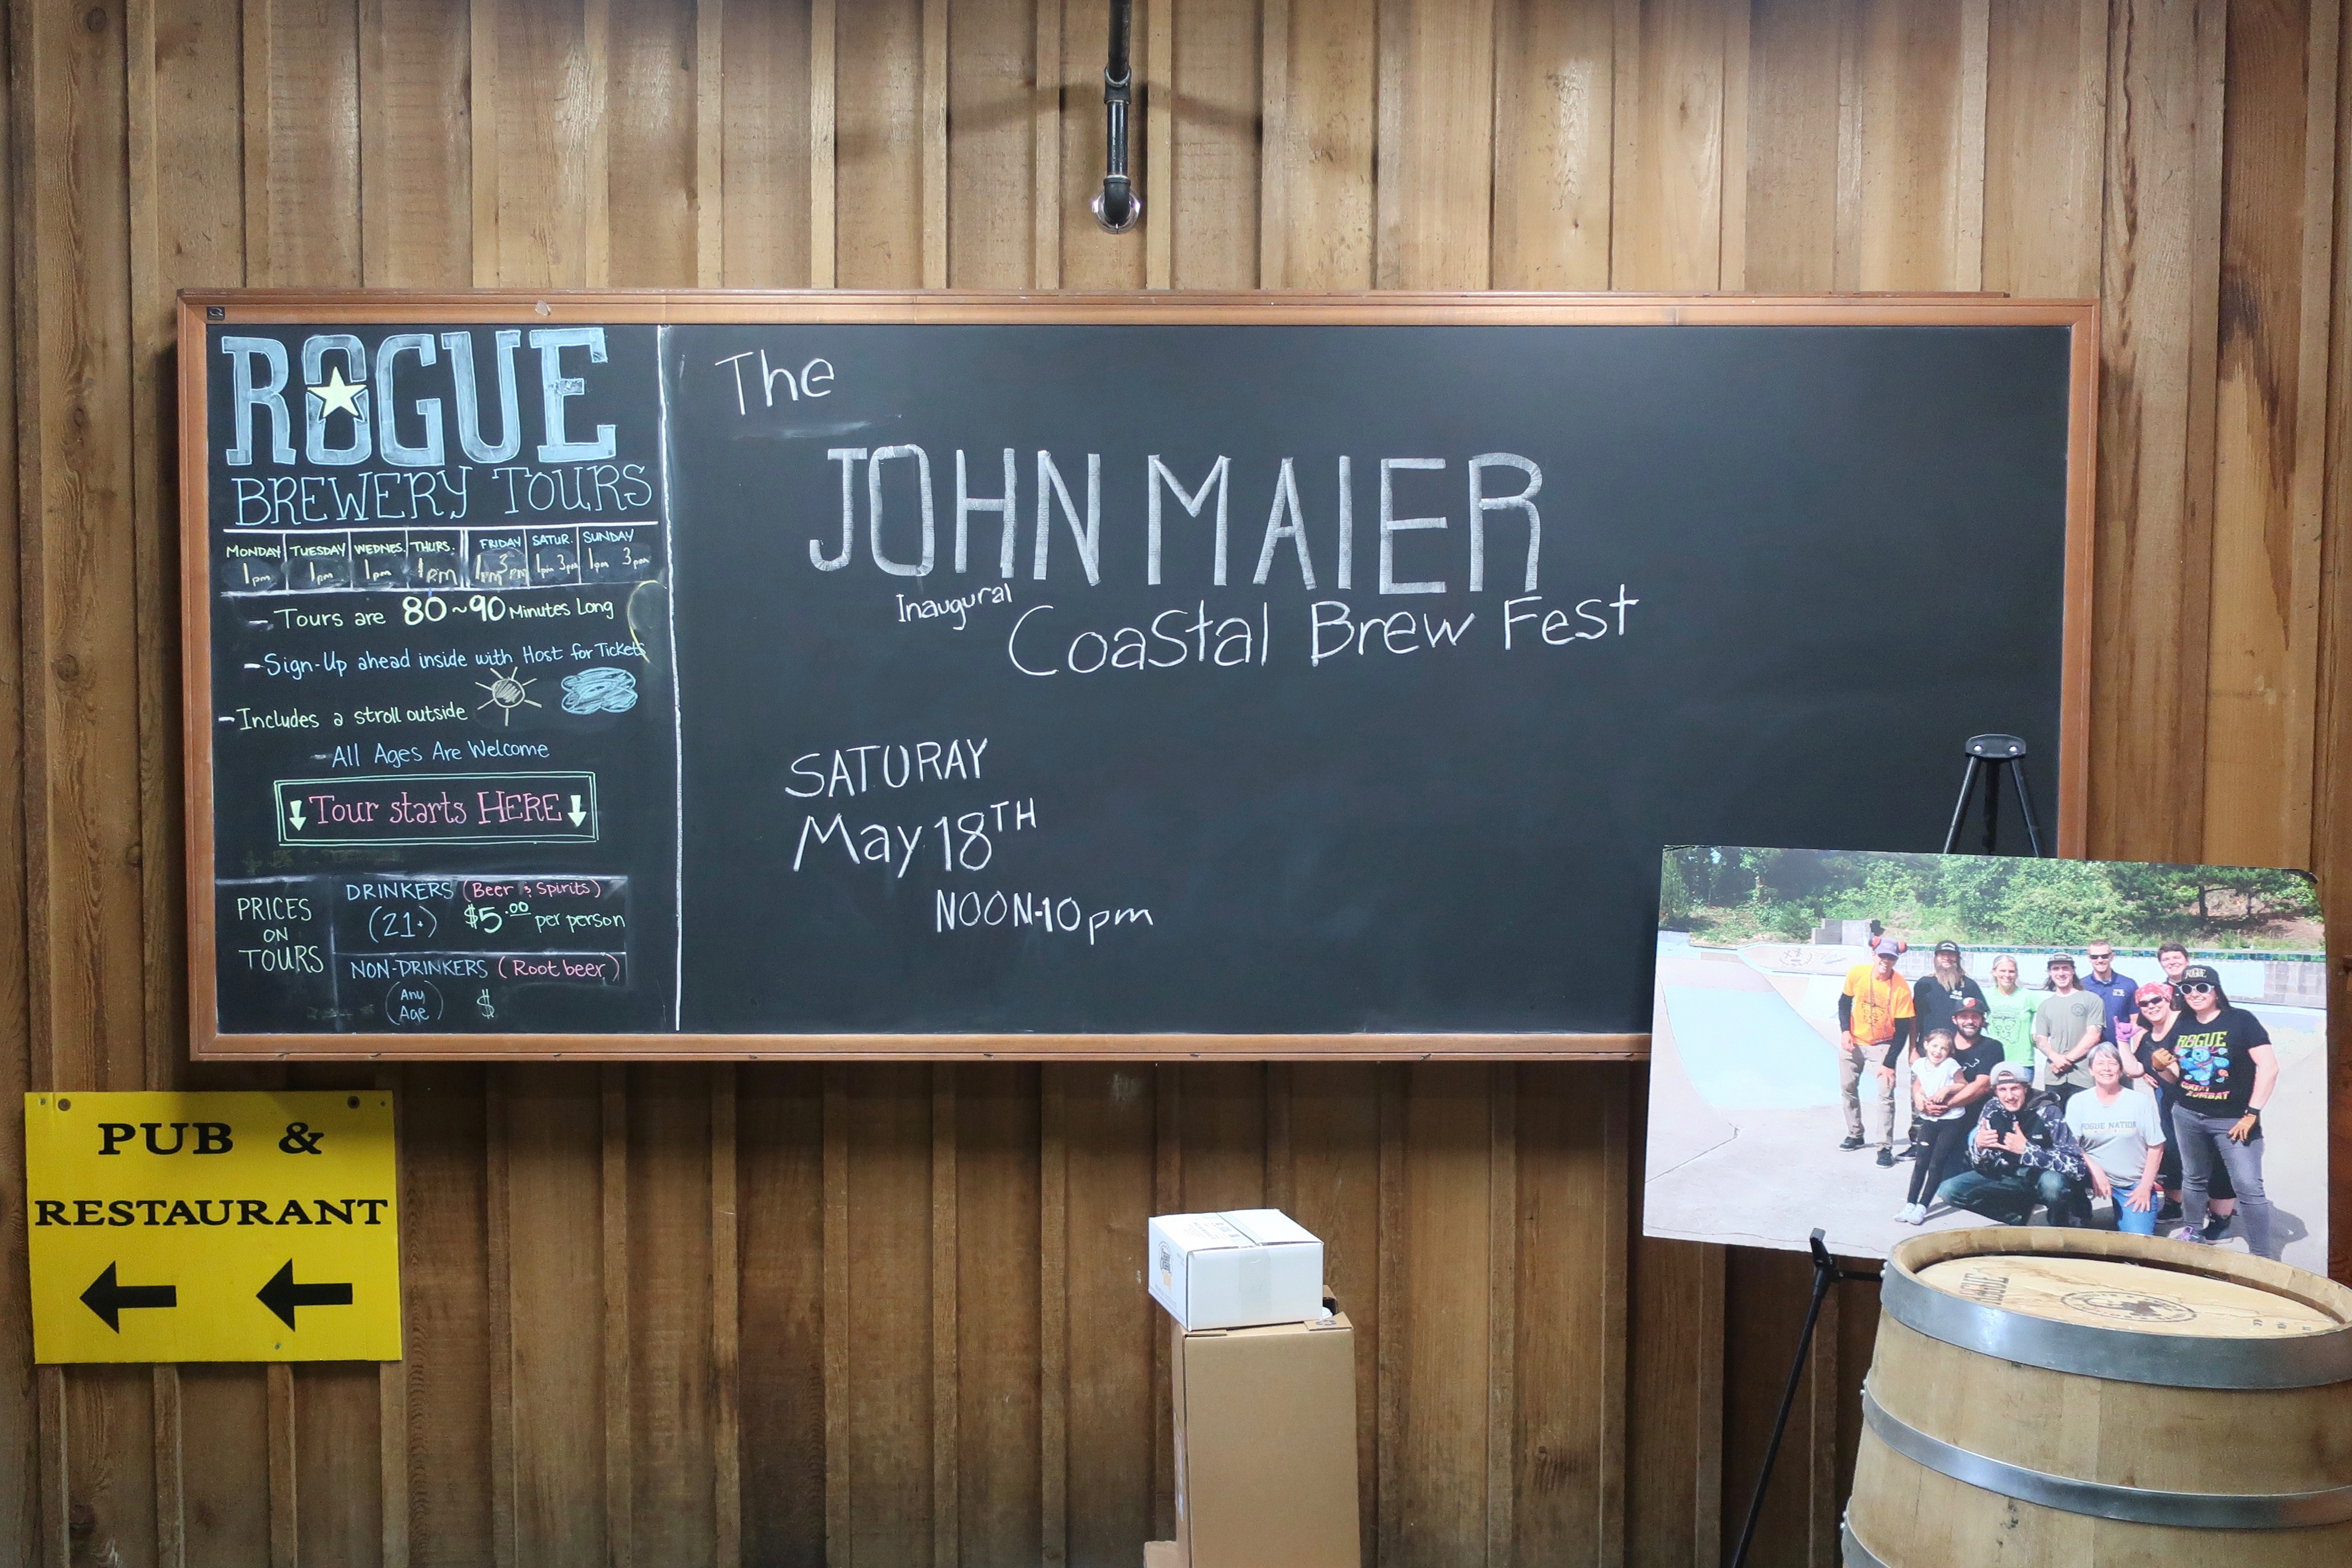 ROGUE
BREWERY TOURS
MONDAY TUESDAY WEDNES. THURS. FRIDAY SATUR. SUNDAY
1pm 1pm 1pm 1pm 1pm 3pm 1pm 3pm 1pm 3pm
- Tours are 80~90 Minutes Long
- Sign-Up ahead inside with Host for Tickets
- Includes a stroll outside
- All Ages Are Welcome
↓ Tour starts HERE ↓
PRICES
ON
TOURS
DRINKERS (Beer & Spirits)
(21+) $5.00 per person
NON-DRINKERS (Root beer)
(Any
Age) $
The
JOHN MAIER
Inaugural
Coastal Brew Fest
SATURAY
May 18TH
NOON-10pm
PUB &
RESTAURANT
← ←
ROGUE
ROGUE NATION